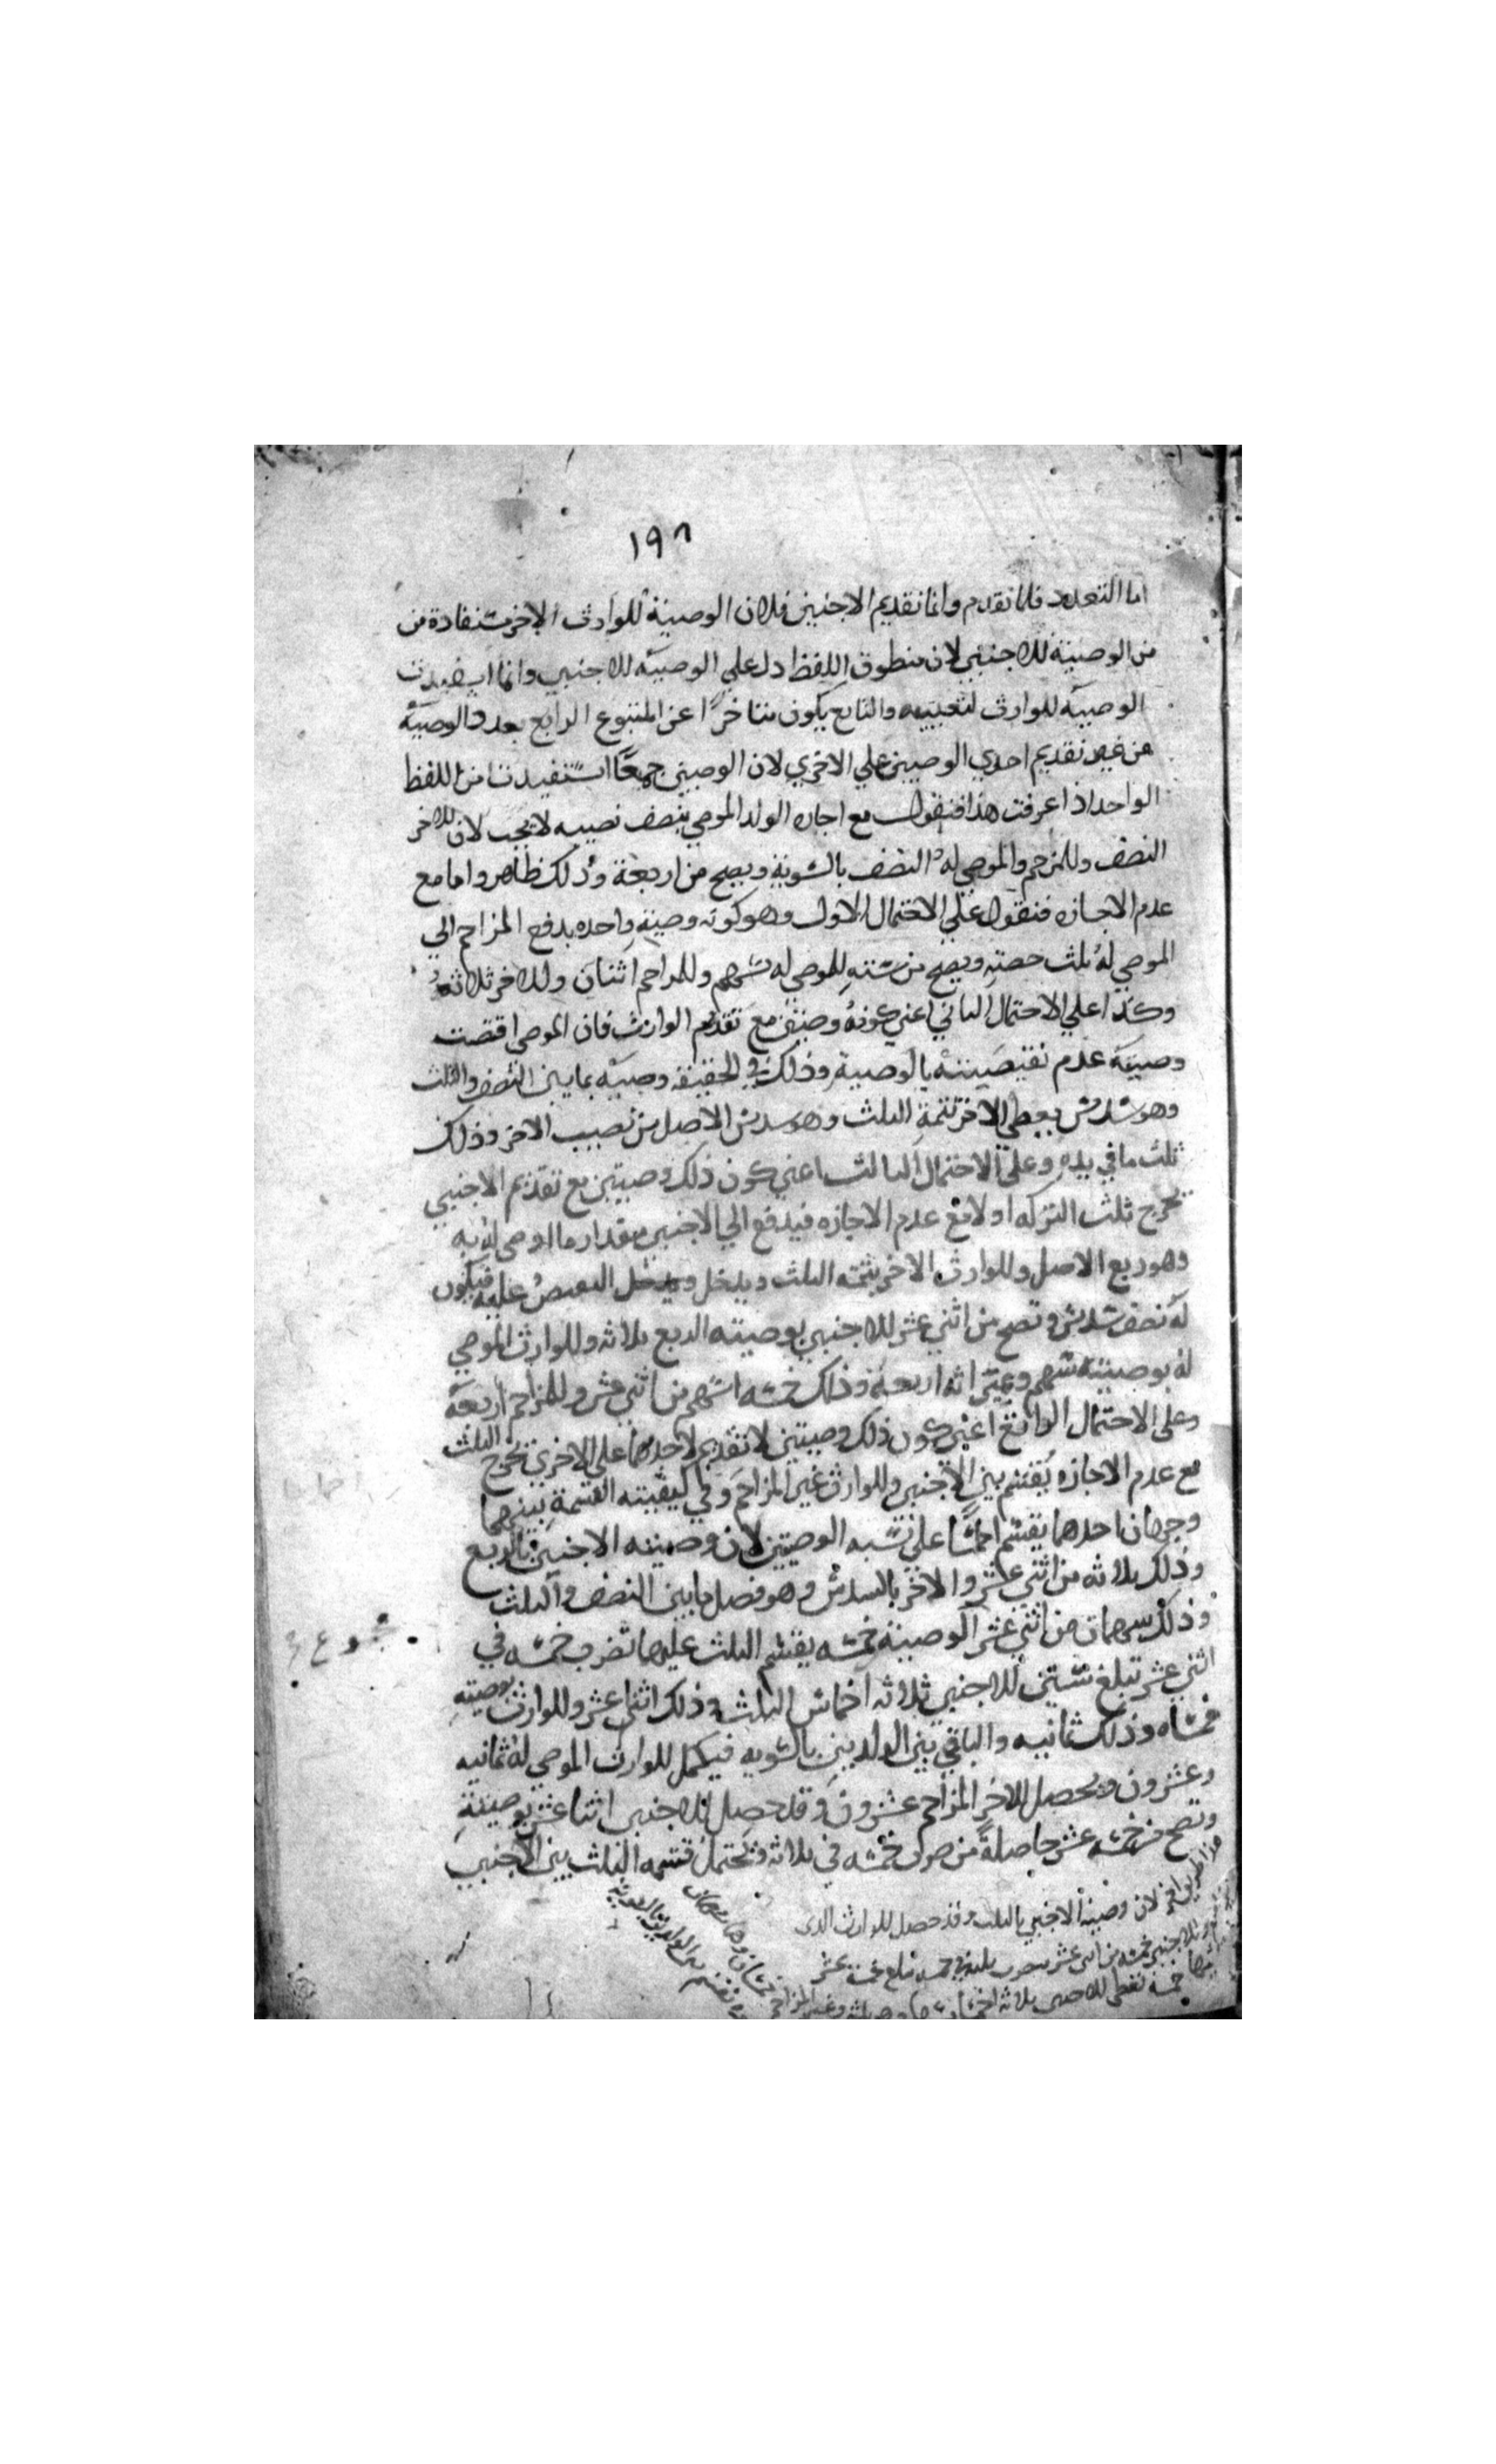 ١٩٨
اما التعدد فلما تقدم واما تقديم الاجنبي فلان الوصية للوارث الاخر مستفادة من
من الوصية للاجنبي لان منطوق اللفظ دل علي الوصية للاجنبي وانما استفيدت
الوصية للوارث لتعيينه والتابع يكون متاخرًا عن المتبوع الرابع بعدد الوصية
من غير تقديم احدي الوصيتين علي الاخري لان الوصيتين جميعًا استفيدتا من اللفظ
الواحد اذا عرفت هذا فنقول مع اجازه الولد الموصي بنصف نصيبه لا يجب لان للاخر
النصف وللمزاحم والموصي له النصف بالسوية ويصح من اربعة وذلك ظاهر واما مع
عدم الاجازه فنقول علي الاحتمال الاول وهو كونه وصية واحده يدفع المزاحم الي
الموصي له ثلث حصته ويصح من ستة للموصي له سهم وللمزاحم اثنان وللاخر ثلاثة
وكذا علي الاحتمال الثاني اعني كونه وصيتين مع تقديم الوارث فان الموصي اقتضت
وصيته عدم نقيصته بالوصية وذلك في الحقيقه وصيه بما بين النصف والثلث
وهو سدس يعطي الاخر تتمة الثلث وهو سدس الاصل من نصيب الاخر وذلك
ثلث ما في يده وعلي الاحتمال الثالث اعني كون ذلك وصيتين مع تقديم الاجنبي
يخرج ثلث التركه اولا مع عدم الاجازه فيدفع الي الاجنبي مقدار ما اوصي له به
وهو ربع الاصل وللوارث الاخر تتمة الثلث ويدخل ويدخل النقص عليه فيكون
له نصف سدس وتصح من اثني عشر للاجنبي بوصيته الربع ثلاثه وللوارث الموصي
له بوصيته سهم وميراثه اربعة وذلك خمسه اسهم من اثني عشر وللمزاحم اربعة
وعلي الاحتمال الرابع اعني كون ذلك وصيتين لا تقديم لاحدهما علي الاخري يخرج الثلث
مع عدم الاجازه يقتسم بين الاجنبي والوارث غير المزاحم وفي كيفيته القسمة بينهما
وجهان احدهما يقسم اخماسًا علي نسبه الوصيتين لان وصيته الاجنبي بالربع
وذلك ثلاثه من اثني عشر والاخر بالسدس وهو فضل ما بين النصف والثلث
وذلك سهمان من اثني عشر الوصية خمسه يقسم الثلث عليها تضرب خمسه في
اثني عشر تبلغ ستين للاجنبي ثلاثه اخماس الثلث وذلك اثني عشر وللوارث بوصيته
خمساه وذلك ثمانيه والباقي بين الولدين بالسويه فيكمل للوارث الموصي له ثمانيه
وعشرون ويحصل للاخر المزاحم عشرون وقد حصل للاجنبي اثنا عشر بوصيته
وتصح من خمسه عشر حاصلةً من ضرب خمسه في ثلاثه ويحتمل قسمه الثلث بين الاجنبي
لان وصية الاجنبي بالثلث وقد حصل للوارث الذي